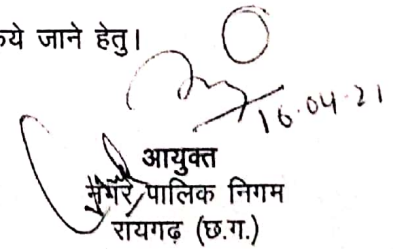 ये जाने हेतु।
16.04.21
आयुक्त
नगर पालिक निगम
रायगढ़ (छ.ग.)